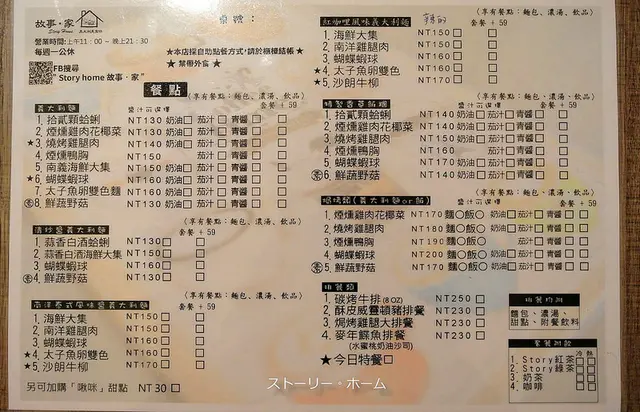 故事·家
Story Home
桌號：
營業時間:上午11：00 ~ 晚上21：30
每週一公休
FB搜尋
"Story home 故事·家"
★本店採自助點餐方式，請於櫃檯結帳★
★禁帶外食★
餐點
(享有餐點：麵包、濃湯、飲品)
義大利麵
醬汁可選擇
套餐 + 59
1. 拾貳顆蛤蜊 NT130 奶油□ 茄汁□ 青醬□ □
2. 煙燻雞肉花椰菜 NT130 奶油□ 茄汁□ 青醬□ □
★3. 燒烤雞腿肉 NT140 奶油□ 茄汁□ 青醬□ □
4. 煙燻鴨胸 NT150 奶油□ 茄汁□ 青醬□ □
5. 南義海鮮大集 NT150 奶油□ 茄汁□ 青醬□ □
★6. 蝴蝶蝦球 NT160 奶油□ 茄汁□ 青醬□ □
7. 太子魚卵雙色麵 NT160 奶油□ 茄汁□ 青醬□ □
素8. 鮮蔬野菇 NT130 奶油□ 茄汁□ 青醬□ □
(享有餐點：麵包、濃湯、飲品)
清炒義大利麵
套餐 + 59
1. 蒜香白酒蛤蜊 NT130□ □
2. 蒜香白酒海鮮大集 NT150□ □
3. 蝴蝶蝦球 NT160□ □
素4. 鮮蔬野菇 NT130□ □
(享有餐點：麵包、濃湯、飲品)
南洋泰式風味義大利麵
套餐 + 59
1. 海鮮大集 NT150□ □
2. 南洋雞腿肉 NT150□ □
3. 蝴蝶蝦球 NT160□ □
★4. 太子魚卵雙色 NT160□ □
★5. 沙朗牛柳 NT170□ □
另可加購「啾咪」甜點 NT30□
(享有餐點：麵包、濃湯、飲品)
紅咖哩風味義大利麵
辣的
套餐 + 59
1. 海鮮大集 NT150□ □
2. 南洋雞腿肉 NT150□ □
3. 蝴蝶蝦球 NT160□ □
★4. 太子魚卵雙色 NT160□ □
★5. 沙朗牛柳 NT170□ □
(享有餐點：麵包、濃湯、飲品)
醬汁可選擇
套餐 + 59
1. 拾貳顆蛤蜊 NT140 奶油□ 茄汁□ 青醬□ □
2. 煙燻雞肉花椰菜 NT140 奶油□ 茄汁□ 青醬□ □
3. 燒烤雞腿肉 NT150 奶油□ 茄汁□ 青醬□ □
4. 煙燻鴨胸 NT160 奶油□ 茄汁□ 青醬□ □
5. 蝴蝶蝦球 NT170 奶油□ 茄汁□ 青醬□ □
素★6. 鮮蔬野菇 NT140 奶油□ 茄汁□ 青醬□ □
(享有餐點：麵包、濃湯、飲品)
焗烤類(義大利麵or飯)
醬汁可選擇
套餐 + 59
1. 煙燻雞肉花椰菜 NT170 麵○飯○ 奶油□ 茄汁□ 青醬□ □
2. 燒烤雞腿肉 NT180 麵○飯○ 奶油□ 茄汁□ 青醬□ □
3. 煙燻鴨胸 NT190 麵○飯○ 奶油□ 茄汁□ 青醬□ □
4. 蝴蝶蝦球 NT200 麵○飯○ 奶油□ 茄汁□ 青醬□ □
素5. 鮮蔬野菇 NT170 麵○飯○ 奶油□ 茄汁□ 青醬□ □
排餐類
1. 碳烤牛排(8 OZ) NT250□
2. 酥皮威靈頓豬排餐 NT230□
3. 焗烤雞腿大排餐 NT230□
4. 麥年鱈魚排餐 NT230□
(水蜜桃奶油沙司)
★今日特餐□
排餐附
麵包、濃湯、
甜點、附餐飲料
套餐附飲
冷 熱
1. Story紅茶□□
2. Story綠茶□□
3. 奶茶□□
4. 咖啡□□
ストーリー・ホーム